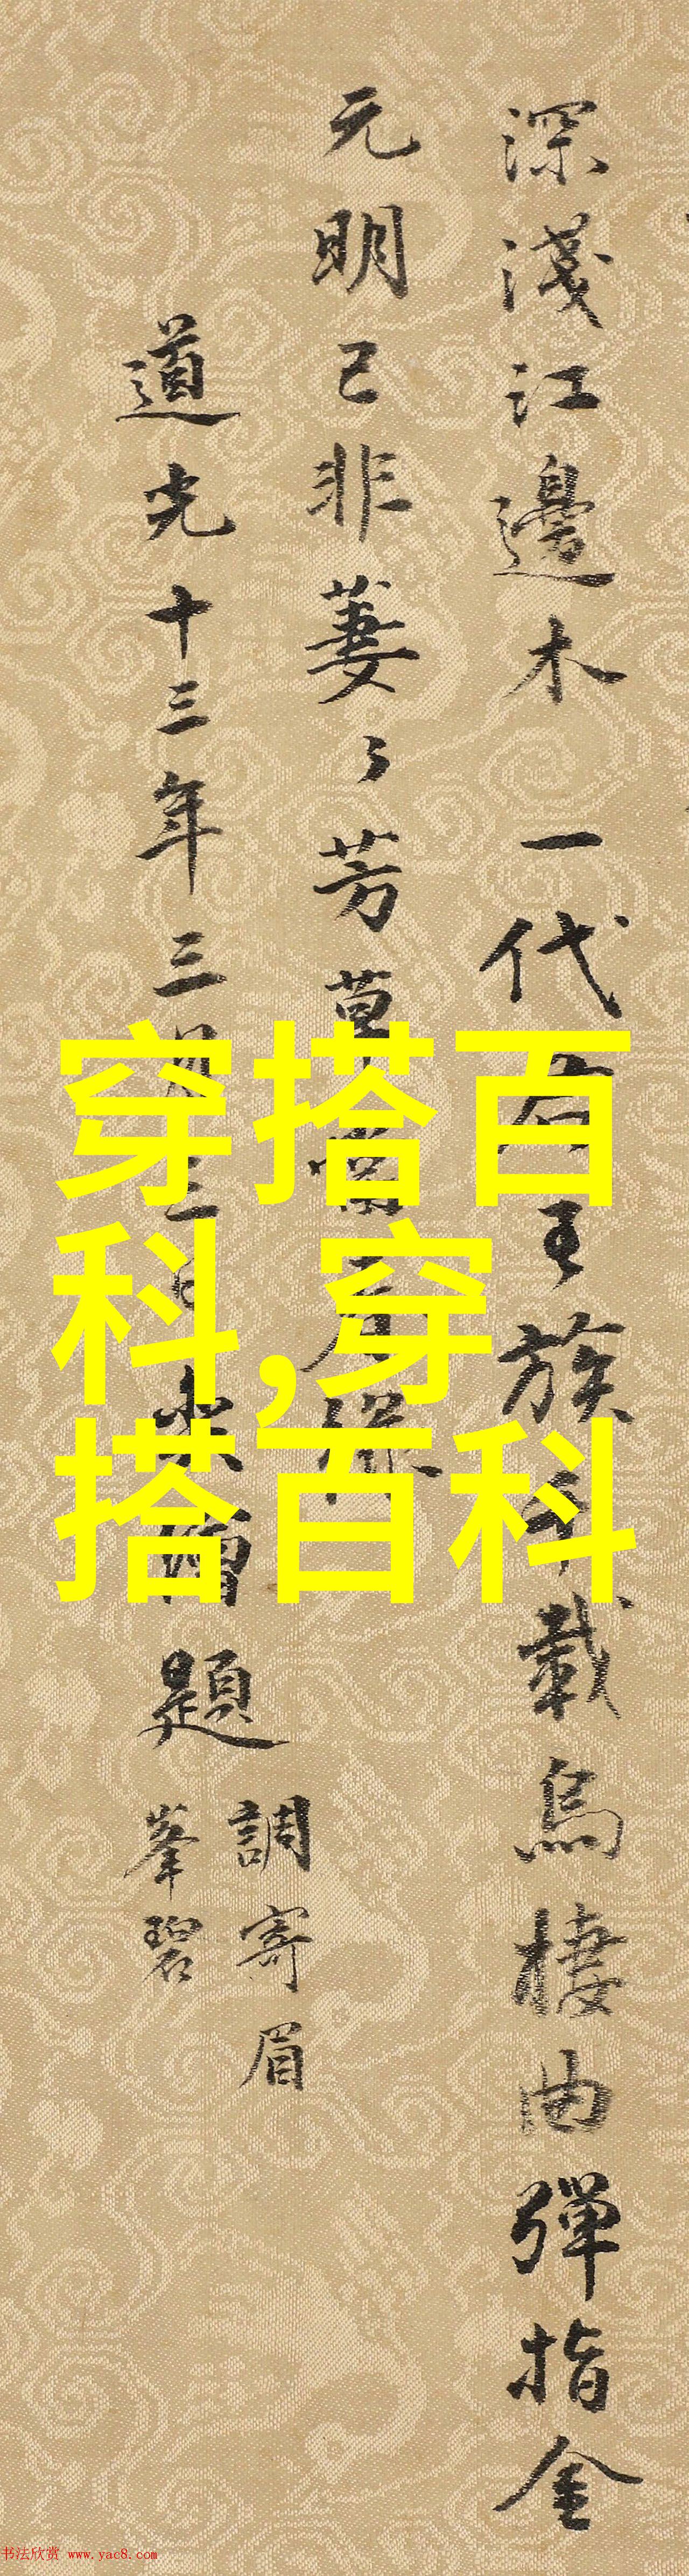 深淺江邊木 一代王族千載烏棲曲彈指金
元明已非萋〻芳草
道光十三年三月三日僧題
調寄眉
峯碧
穿搭百
科,穿
搭百科
书法欣赏 www.yac8.com